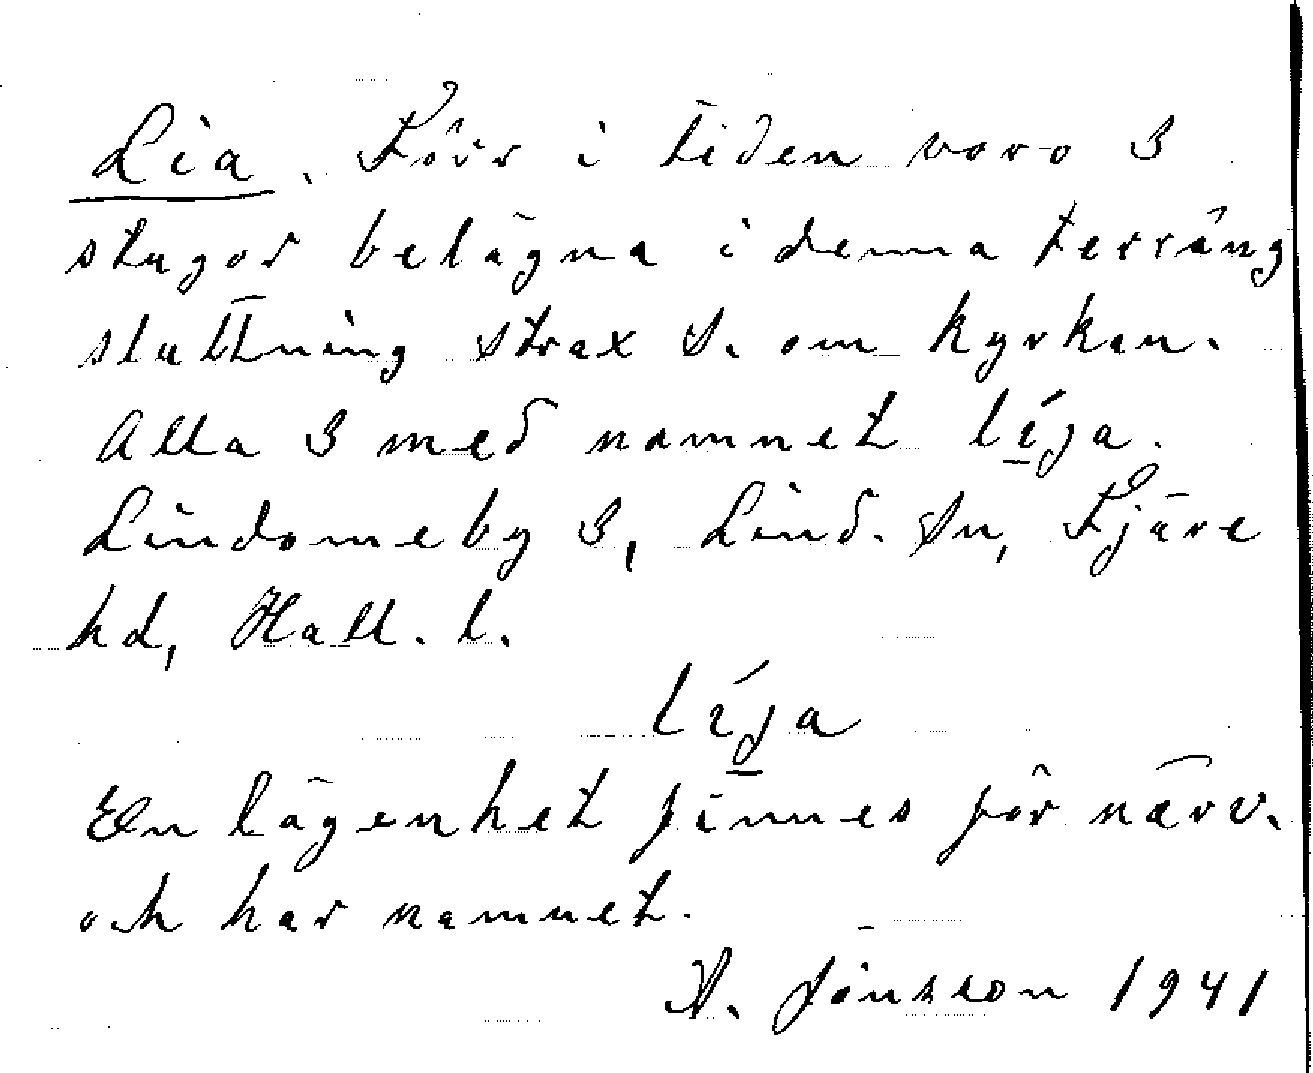 Lia. Förr i tiden voro 3
stugor belägna i denna terräng
sluttning strax S. om kyrkan.
Alla 3 med namnet líja.
Lindomeby 3, Lind. Sn, Fjäre
hd, Hall. l.
líja
En lägenhet finnes för närv.
och har namnet.
A. Jönsson 1941